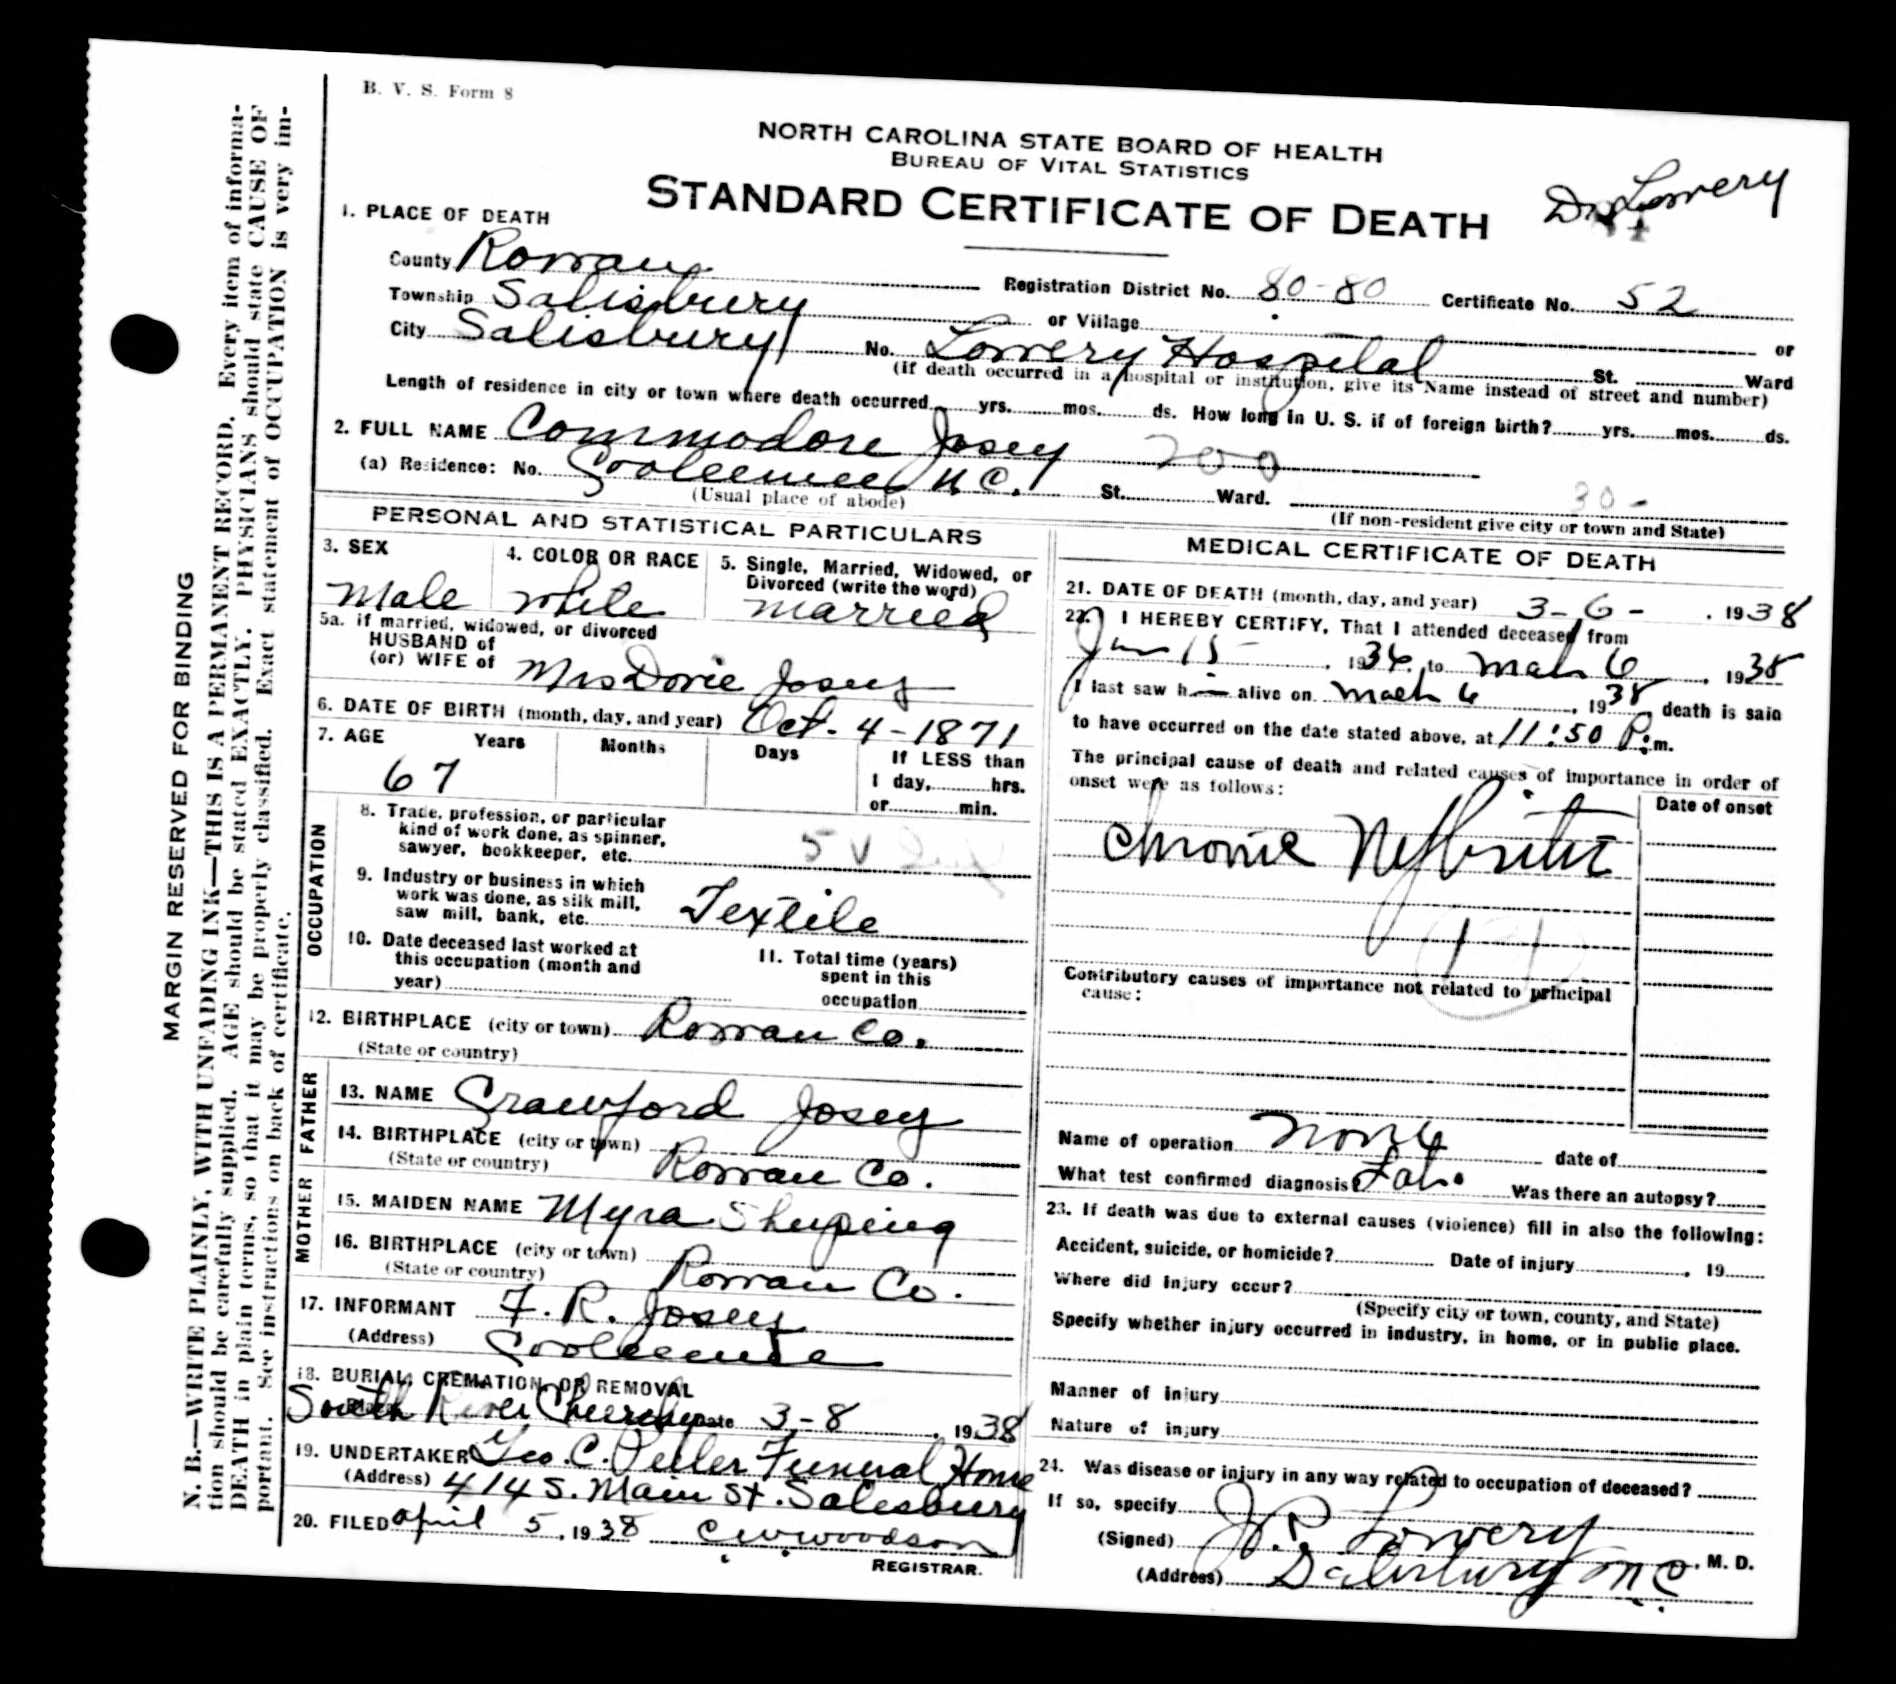 B. V. S. Form 8
NORTH CAROLINA STATE BOARD OF HEALTH
BUREAU OF VITAL STATISTICS
STANDARD CERTIFICATE OF DEATH
Dr Lowery
1. PLACE OF DEATH
County Rowan Registration District No. 80-80 Certificate No. 52
Township Salisbury or Village or
City Salisbury No. Lowery Hospital St. Ward
(If death occurred in a hospital or institution, give its Name instead of street and number)
Length of residence in city or town where death occurred yrs. mos. ds. How long in U. S. if of foreign birth? yrs. mos. ds.
2. FULL NAME Commodore Josey 200
(a) Residence: No. Cooleemee N.C. St. Ward. 30-
(Usual place of abode) (If non-resident give city or town and State)
PERSONAL AND STATISTICAL PARTICULARS
3. SEX 4. COLOR OR RACE 5. Single, Married, Widowed, or
Divorced (write the word)
Male White Married
5a. If married, widowed, or divorced
HUSBAND of
(or) WIFE of Mrs Dovie Josey
6. DATE OF BIRTH (month, day, and year) Oct. 4-1871
7. AGE Years Months Days If LESS than
67 1 day, hrs.
or min.
OCCUPATION
8. Trade, profession, or particular
kind of work done, as spinner,
sawyer, bookkeeper, etc. 5 V
9. Industry or business in which
work was done, as silk mill,
saw mill, bank, etc. Textile
10. Date deceased last worked at
this occupation (month and
year)
11. Total time (years)
spent in this
occupation
12. BIRTHPLACE (city or town) Rowan Co.
(State or country)
FATHER
13. NAME Crawford Josey
14. BIRTHPLACE (city or town)
(State or country) Rowan Co.
MOTHER
15. MAIDEN NAME Myra Shuping
16. BIRTHPLACE (city or town)
(State or country) Rowan Co.
17. INFORMANT F. R. Josey
(Address) Cooleemee
18. BURIAL, CREMATION, OR REMOVAL
Place South River Church Date 3-8, 1938
19. UNDERTAKER Geo. C. Peeler Funeral Home
(Address) 414 S. Main St. Salisbury
20. FILED April 5, 1938 C W Woodson
REGISTRAR.
MEDICAL CERTIFICATE OF DEATH
21. DATE OF DEATH (month, day, and year) 3-6-, 1938
22. I HEREBY CERTIFY, That I attended deceased from
Jan 15, 1936, to Mach 6, 1938
I last saw h alive on Mach 6, 1938 death is said
to have occurred on the date stated above, at 11:50 P. m.
The principal cause of death and related causes of importance in order of
onset were as follows:
Date of onset
Chronic Nephritis
131
Contributory causes of importance not related to principal
cause:
Name of operation None date of
What test confirmed diagnosis? Lab. Was there an autopsy?
23. If death was due to external causes (violence) fill in also the following:
Accident, suicide, or homicide? Date of injury, 19
Where did injury occur?
(Specify city or town, county, and State)
Specify whether injury occurred in industry, in home, or in public place.
Manner of injury
Nature of injury
24. Was disease or injury in any way related to occupation of deceased?
If so, specify
(Signed) J. P. Lowery, M. D.
(Address) Salisbury N.C.
MARGIN RESERVED FOR BINDING
N. B.—WRITE PLAINLY, WITH UNFADING INK—THIS IS A PERMANENT RECORD. Every item of informa-
tion should be carefully supplied. AGE should be stated EXACTLY. PHYSICIANS should state CAUSE OF
DEATH in plain terms, so that it may be properly classified. Exact statement of OCCUPATION is very im-
portant. See instructions on back of certificate.